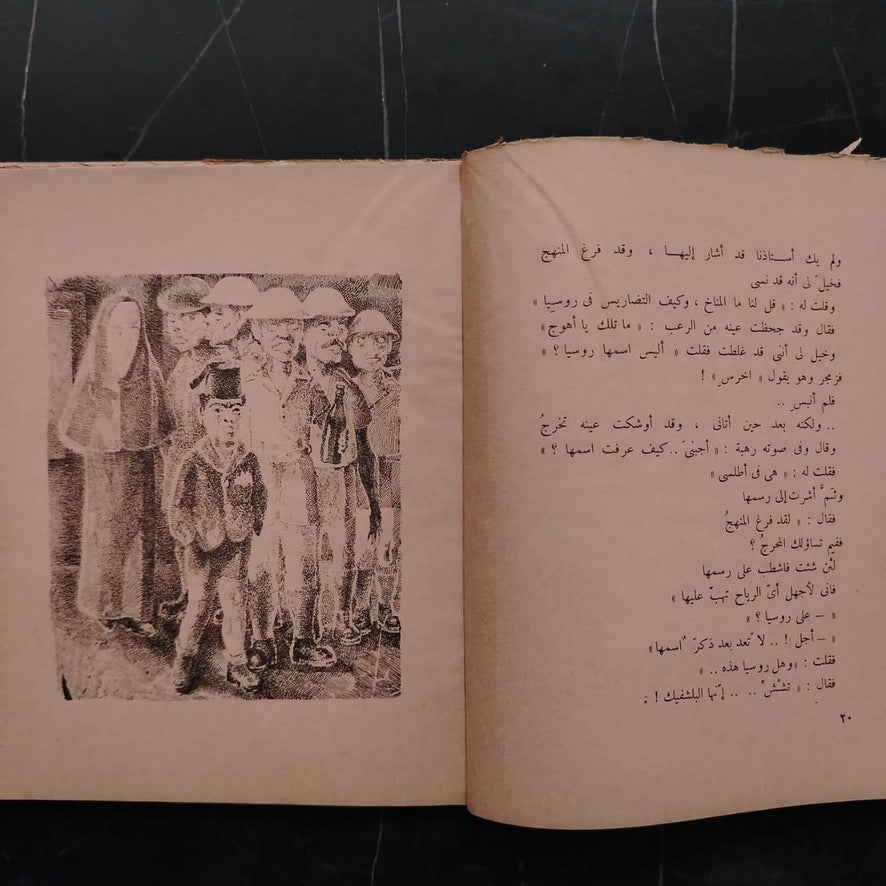 ولم يك أستاذنا قد أشار إليها ، وقد فرغ المنهج
فخيلّ لى أنه قد نسى
وقلت له : « قل لنا ما المناخ ، وكيف التضاريس فى روسيا »
فقال وقد جحظت عينه من الرعب : « ما تلك يا أهوج »
وخيل لى أننى قد غلطت فقلت « أليس اسمها روسيا ؟ »
فزمجر وهو يقول « اخرسِ » !
فلم أنبس ..
.. ولكنه بعد حين أتانى ، وقد أوشكت عينه تخرجُ
وقال وفى صوته رهبة : « أجبنىّ .. كيف عرفت اسمها ؟ »
فقلت له : « هى فى أطلسى »
وثمَّ أشرت إلى رسمها
فقال : « لقد فرغ المنهجُ
ففيم تساؤلك المحرجُ ؟
لئن شئت فاشطب على رسمها
فانى لأجهل أىّ الرياح تهبّ عليها »
« — على روسيا ؟ »
« — أجل ! .. لا تعد بعد ذكرَ اسمها »
فقلت : « وهل روسيا هذه .. »
فقال : « تششْ .. .. إنّها البلشفيك ! .
٢٠